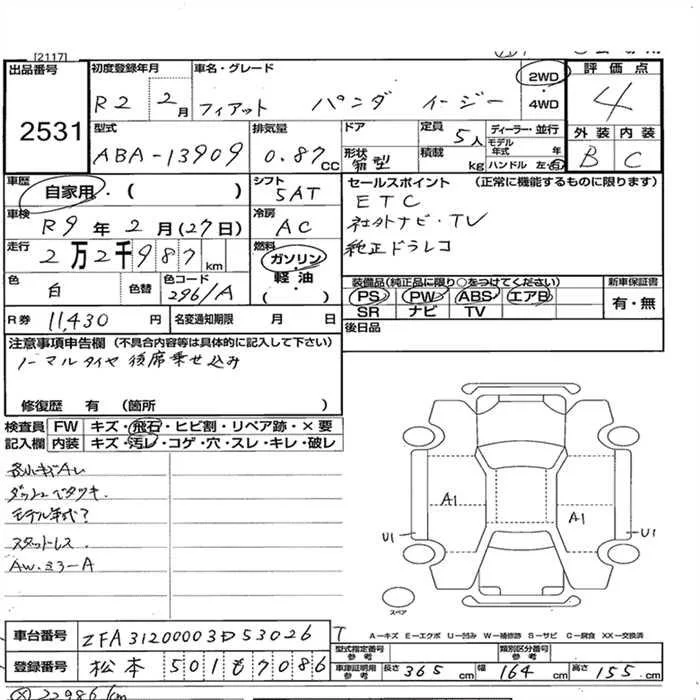 [2117]
出品番号
2531
初度登録年月
R2 2月
車名・グレード
フィアット パンダ イージー
2WD
・
4WD
評価点
4
外装 内装
B C
型式
ABA-13909
排気量
0.87 CC
ドア
形状 箱型
定員 5人
積載 kg
ディーラー・並行
モデル年式 年
ハンドル 左・右
車歴
自家用・( )
シフト
5AT
車検
R9年2月(27日)
冷房
AC
走行
2万2千987km
燃料
ガソリン
・
軽油
( )
色
白
色替
色コード
296/A
R券 11,430 円
名変通知期限 月 日
セールスポイント (正常に機能するものに限ります)
ETC
社外ナビ・TV
純正ドラレコ
装備品(純正品に限り○をつけてください)
PS PW ABS エアB
SR ナビ TV
新車保証書
有・無
後日品
注意事項申告欄 (不具合内容等は具体的に記入して下さい)
ノーマルタイヤ後席乗せ込み
修復歴 有 (箇所 )
検査員記入欄
FW キズ・飛石・ヒビ割・リペア跡・×要
内装 キズ・汚レ・コゲ・穴・スレ・キレ・破レ
各小キズAし
ダッシュベタツキ.
モデル年式?
スタットレス.
AW.ミラーA
A1
A1
U1
U1
スペア
車台番号 ZFA31200003D53026
登録番号 松本 501 も 7086
T
A―キズ E―エクボ U―凹み W―補修跡 S―サビ C―腐食 XX―交換済
型式指定番号
参考
類別区分番号
参考
車庫証明用
参考
長さ 365 cm 幅 164 cm 高さ 155 cm
22986km